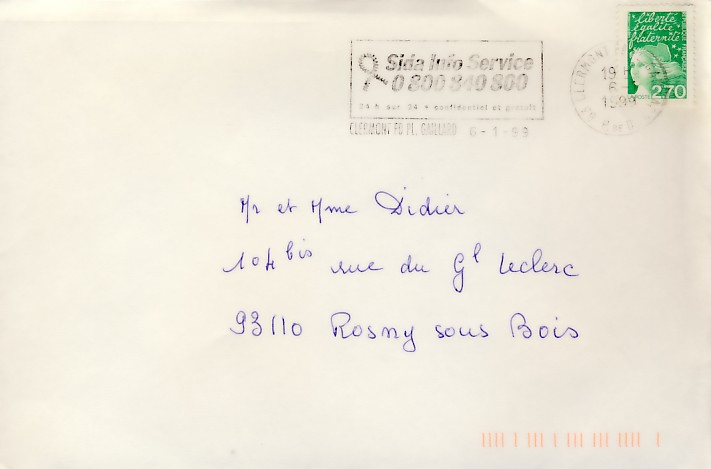 liberté
égalité
fraternité
2,70
Sida Info Service
0 800 840 800
24 h sur 24 • confidentiel et gratuit
CLERMONT FD PL. GAILLARD 6-1-99
CLERMONT
19 H
6
1999
Mr et Mme Didier
104 bis rue du Gl Leclerc
93110 Rosny sous Bois